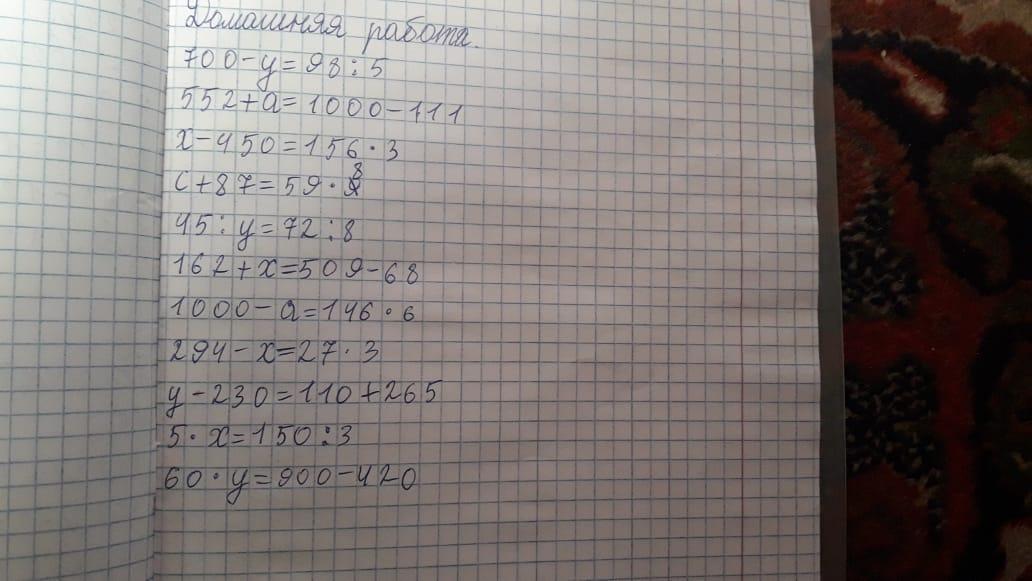 Домашняя работа.
700-у=98:5
552+а=1000-111
х-450=156·3
с+87=59·8
45:у=72:8
162+х=509-68
1000-а=146·6
294-х=27·3
у-230=110+265
5·х=150:3
60·у=900-420